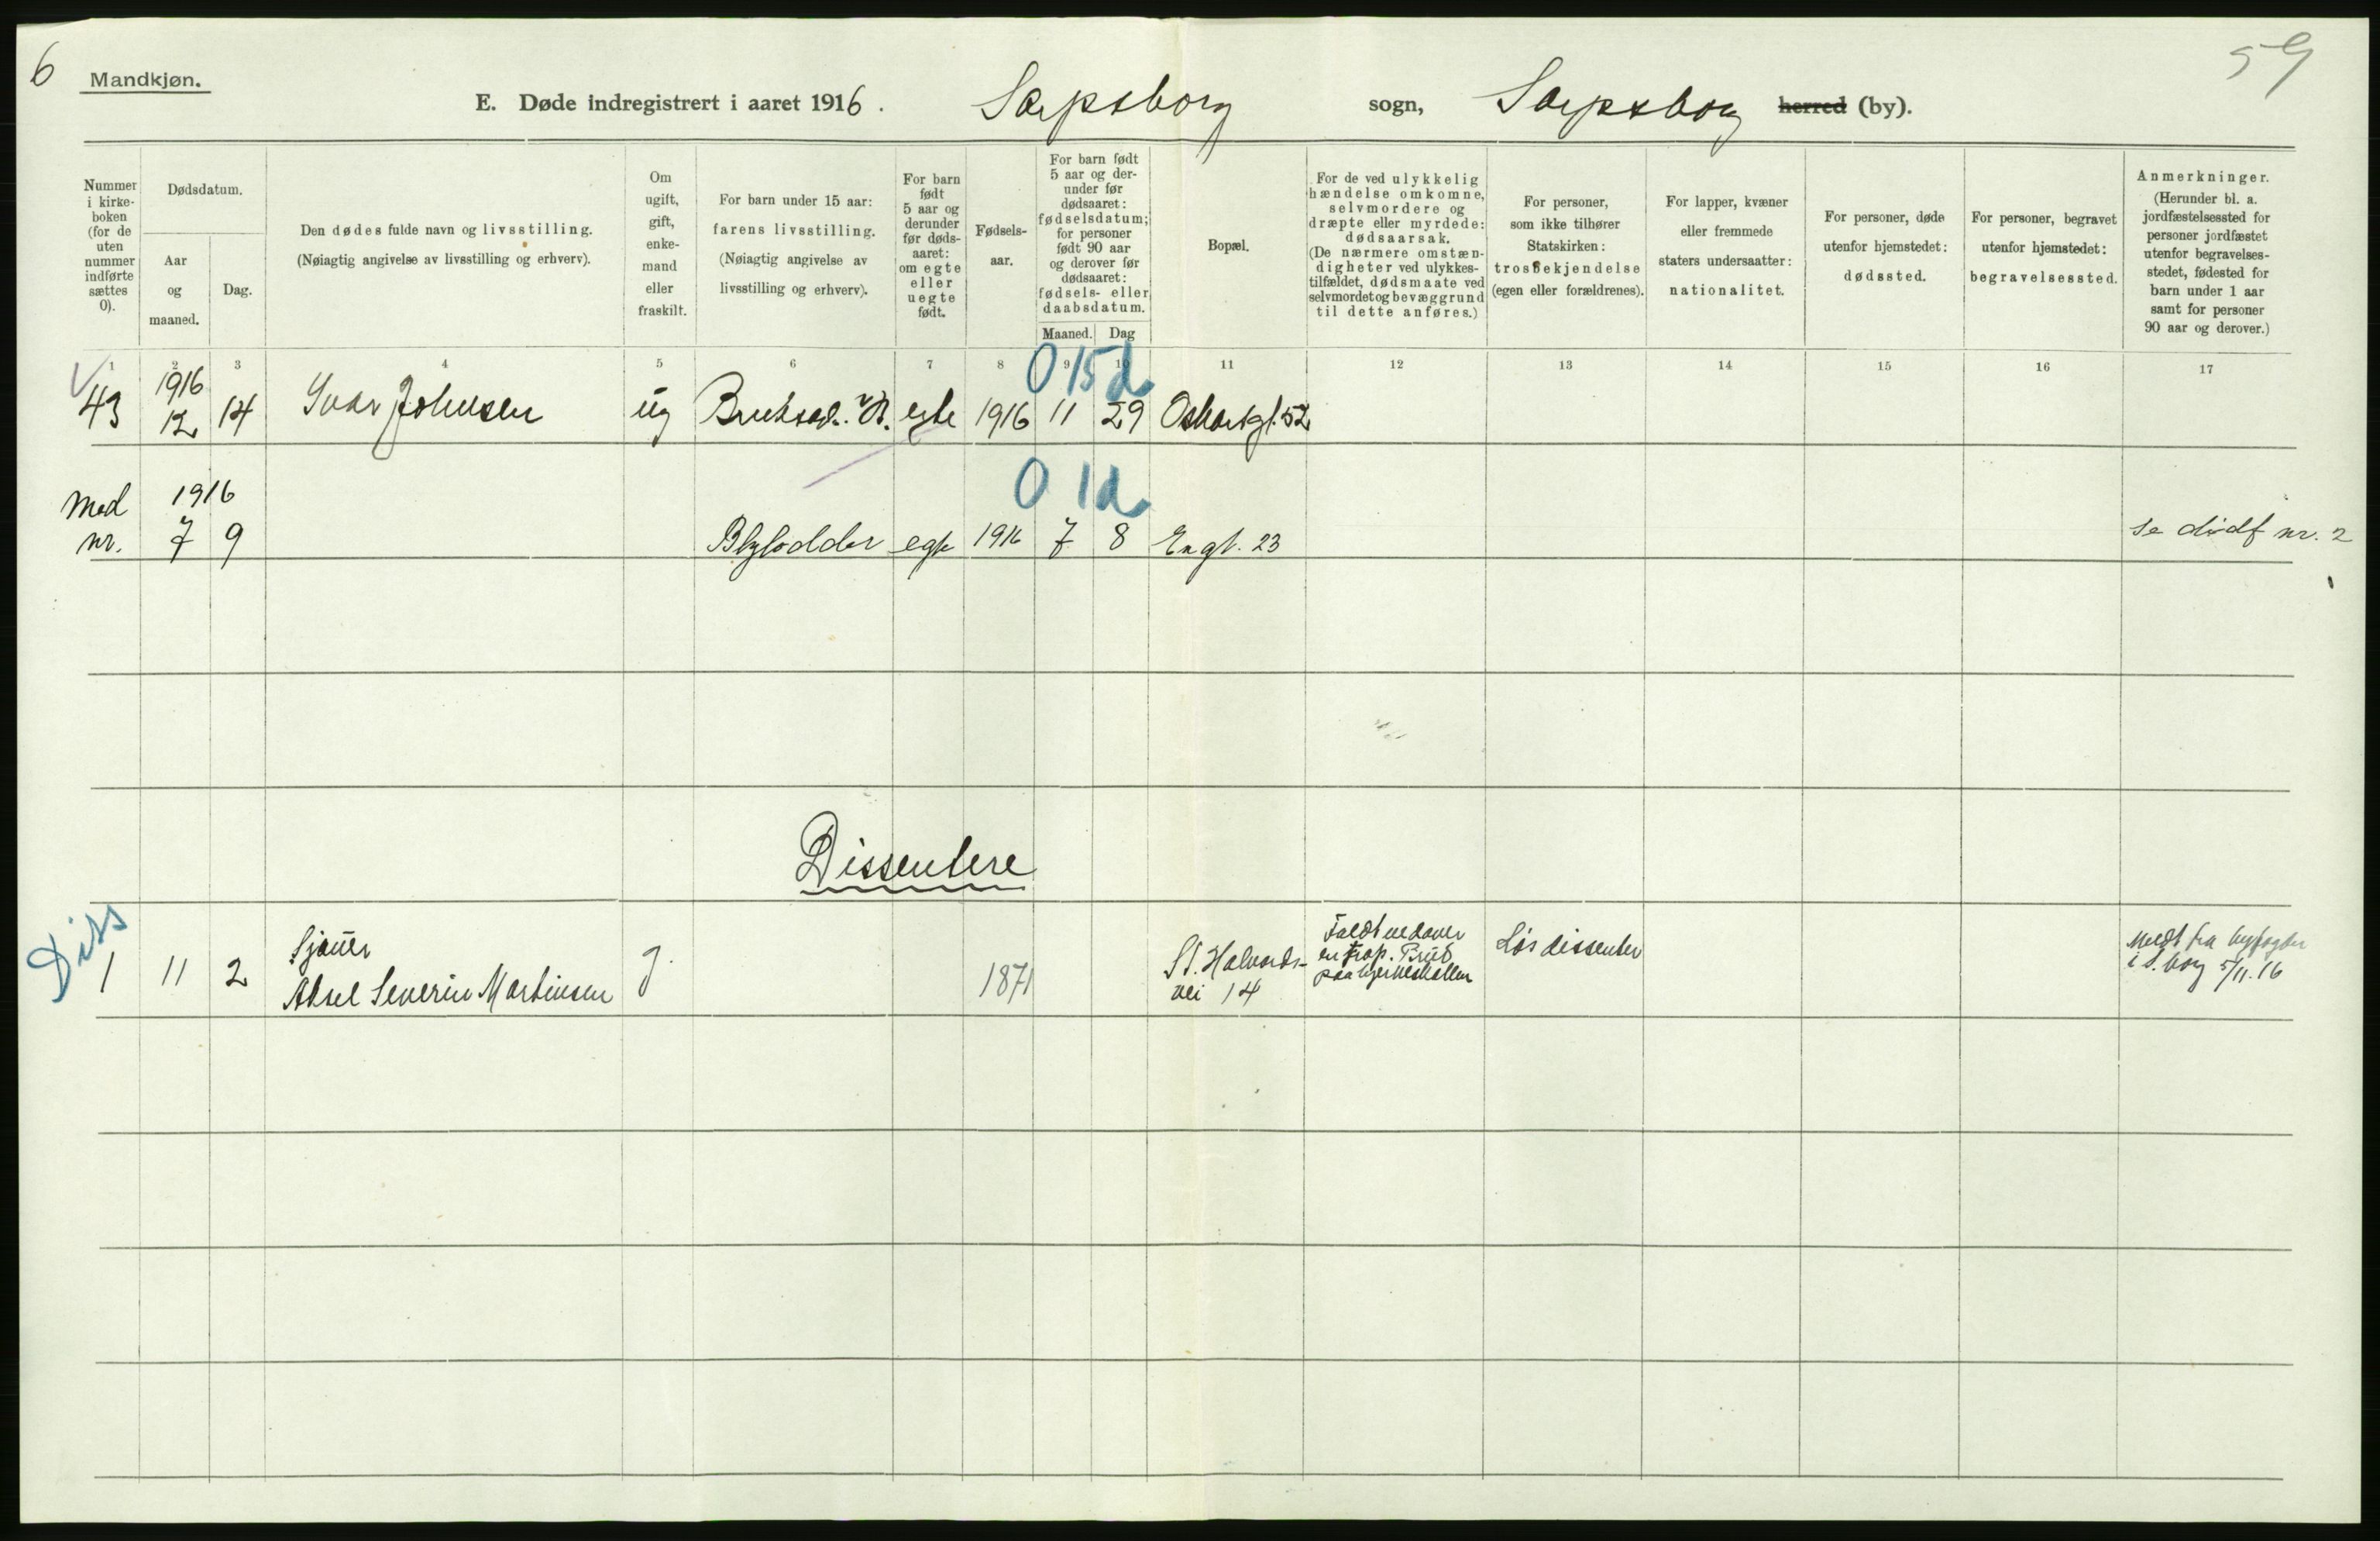 6
Mandkjøn.
59
E. Døde indregistrert i aaret 1916. Sarpsborg sogn, Sarpsborg herred (by).
Nummer
i kirke-
boken
(for de
uten
nummer
indførte
sættes
0).
Dødsdatum.
Aar
og
maaned.
Dag.
Den dødes fulde navn og livsstilling.
(Nøiagtig angivelse av livsstilling og erhverv).
Om
ugift,
gift,
enke-
mand
eller
fraskilt.
For barn under 15 aar:
farens livsstilling.
(Nøiagtig angivelse av
livsstilling og erhverv).
For barn
født
5 aar og
derunder
før døds-
aaret:
om egte
eller
uegte
født.
Fødsels-
aar.
For barn født
5 aar og der-
under før
dødsaaret:
fødselsdatum;
for personer
født 90 aar
og derover før
dødsaaret:
fødsels- eller
daabsdatum.
Maaned. Dag
Bopæl.
For de ved ulykkelig
hændelse omkomne,
selvmordere og
dræpte eller myrdede:
dødsaarsak.
(De nærmere omstæn-
digheter ved ulykkes-
tilfældet, dødsmaate ved
selvmordet og bevæggrund
til dette anføres.)
For personer,
som ikke tilhører
Statskirken:
trosbekjendelse
(egen eller forældrenes).
For lapper, kvæner
eller fremmede
staters undersaatter:
nationalitet.
For personer, døde
utenfor hjemstedet:
dødssted.
For personer, begravet
utenfor hjemstedet:
begravelsessted.
Anmerkninger.
(Herunder bl. a.
jordfæstelsessted for
personer jordfæstet
utenfor begravelses-
stedet, fødested for
barn under 1 aar
samt for personer
90 aar og derover.)
1 2 3 4 5 6 7 8 9 10 11 12 13 14 15 16 17
0 15 d
1916
43 12 14 Ivar Johnsen ug egte 1916 11 29 Oskarsgt. 52
0 1 d
Med 1916
nr. 7 9 egte 1916 7 8 Engt. 23 se dødf nr. 2
Dissentere
Diss
1 11 2 Sjauer
Aksel Severin Martinsen g. 1871 St. Halvards-
vei 14
Løs dissenter
Meldt fra byfogden
i S.borg 5/11.16